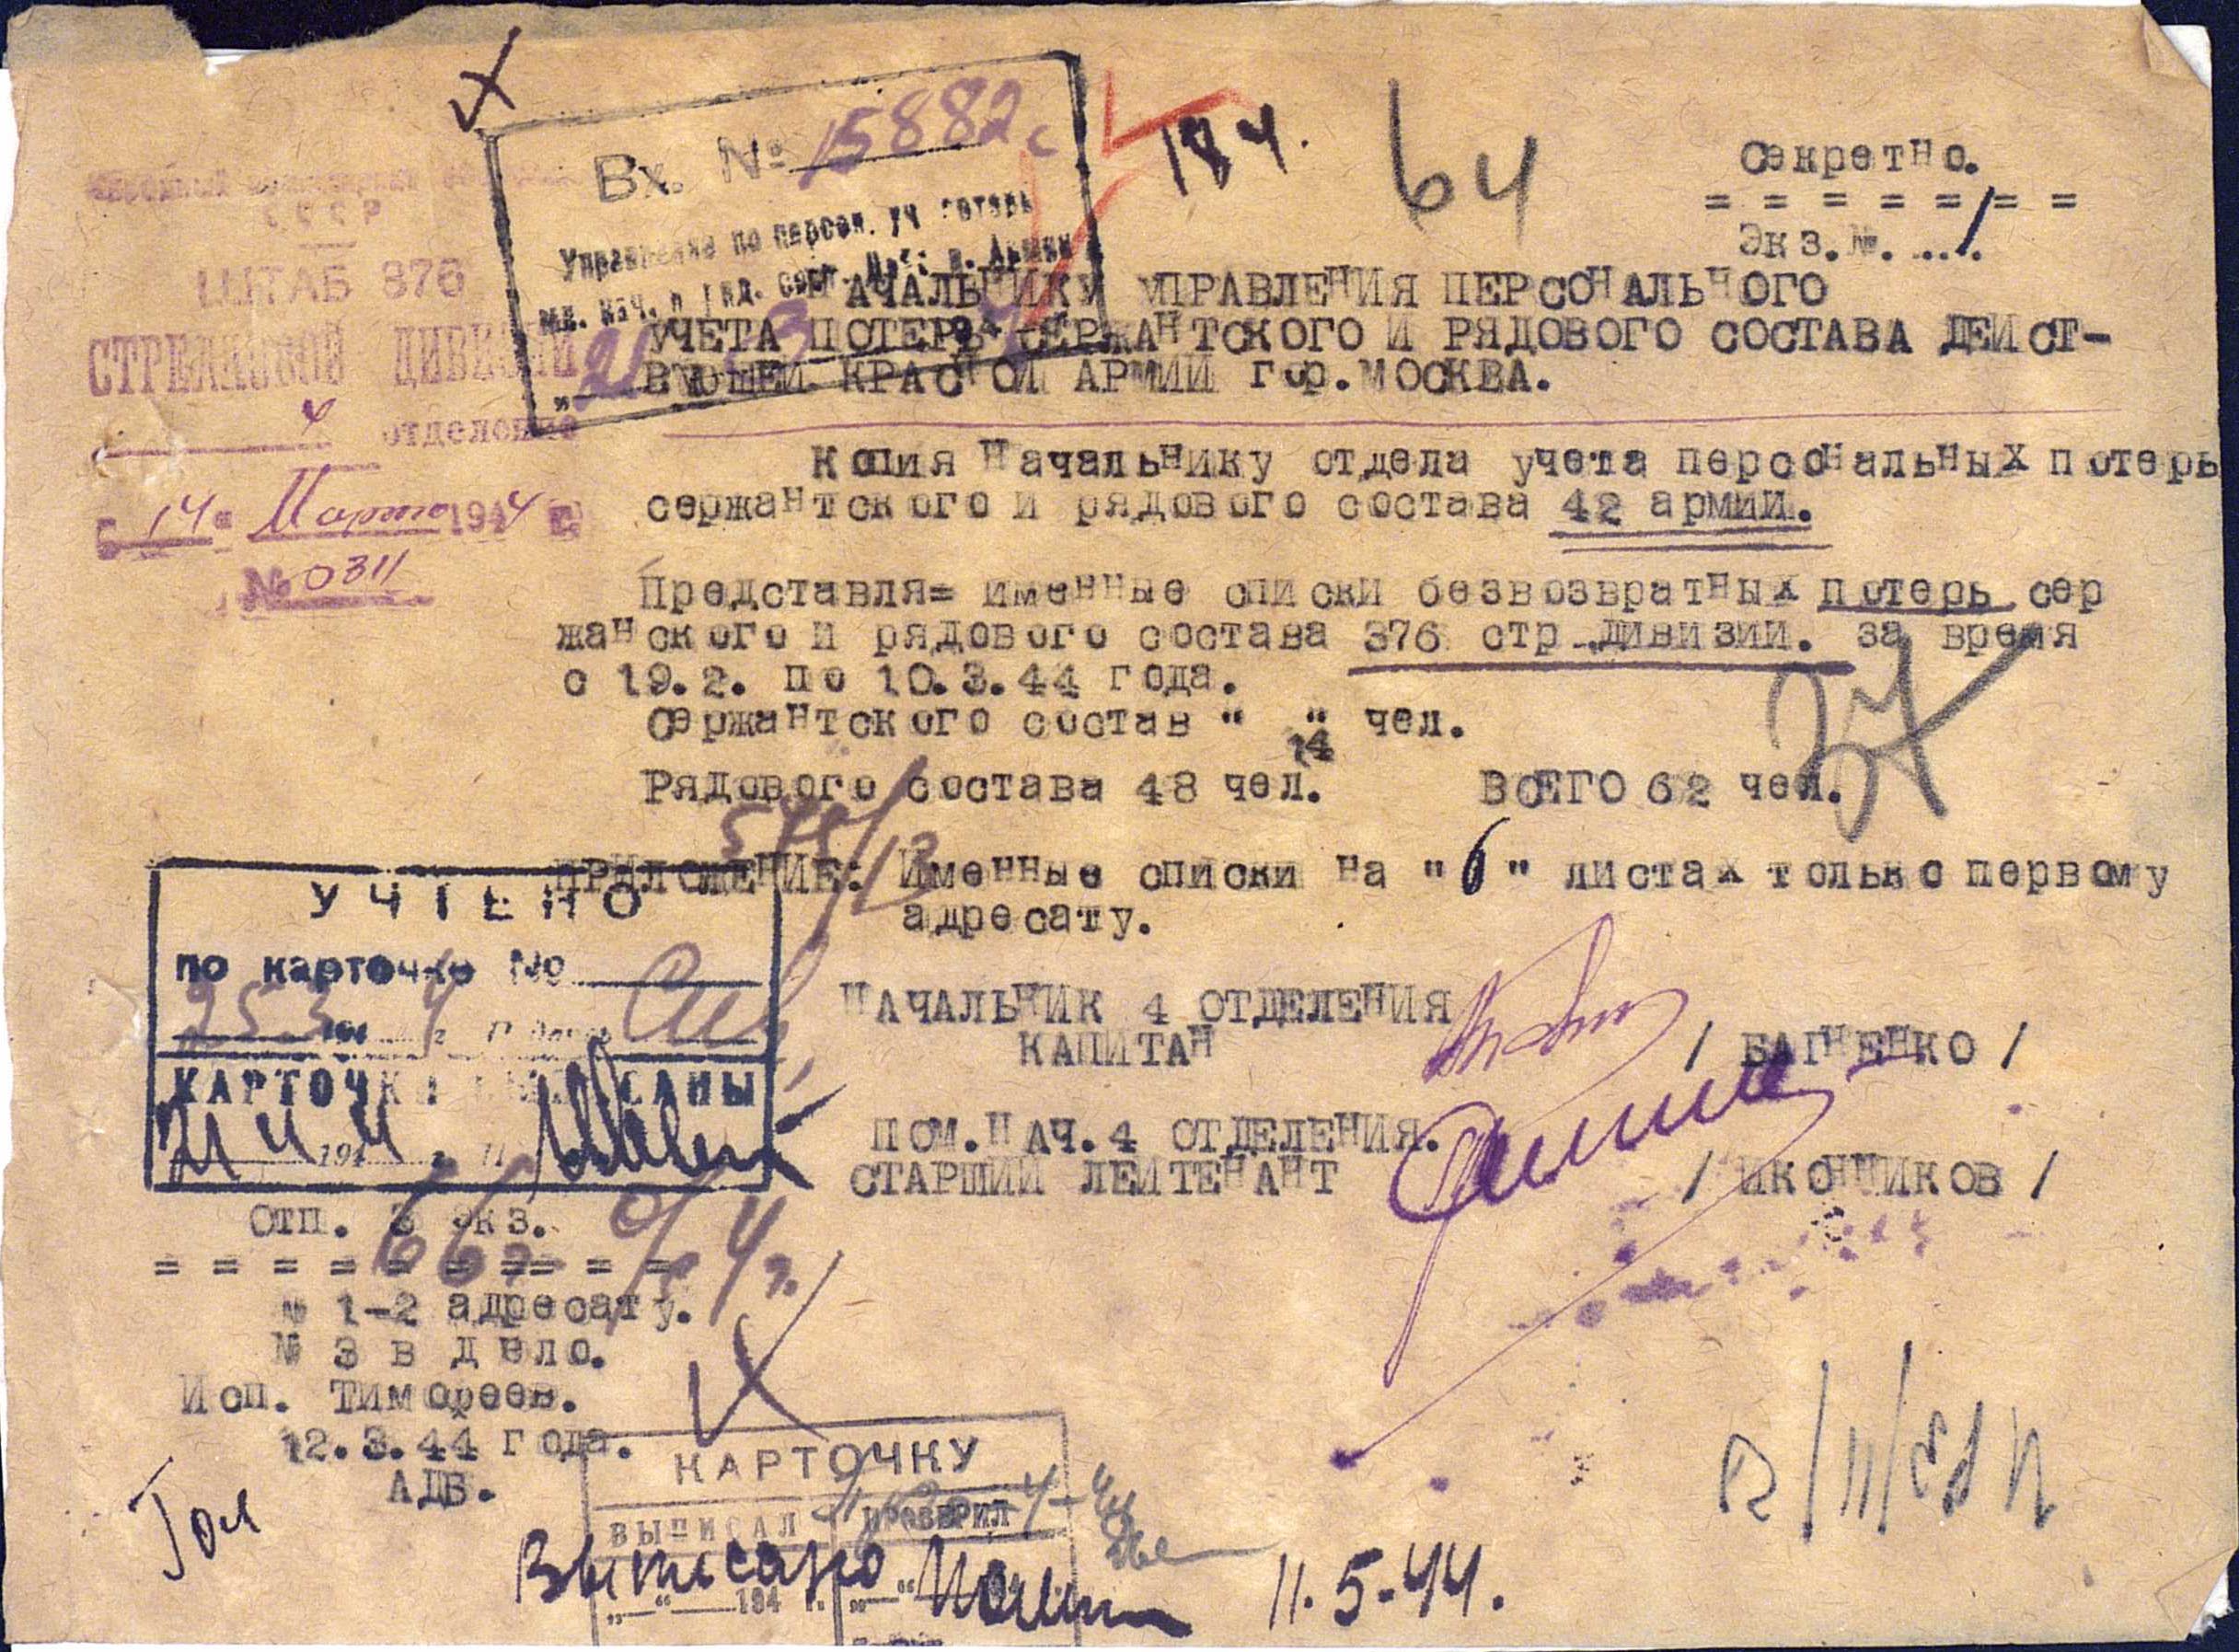 Вх. № 15882с
184.
64
Секретно.
= = = = = = =
Экз.№. ...1.
Управление по персон. уч потерь
СССР
ШТАБ 376
СТРЕЛКОВОЙ ДИВИЗИИ
4 отделение
"14" Марта 1944 г.
№ 0311
НАЧАЛЬНИКУ УПРАВЛЕНИЯ ПЕРСОНАЛЬНОГО
УЧЕТА ПОТЕРЬ СЕРЖАНТСКОГО И РЯДОВОГО СОСТАВА ДЕЙСТ-
ВУЮЩЕЙ КРАСНОЙ АРМИИ гор.МОСКВА.
Копия Начальнику отдела учета персональных потерь
сержантского и рядового состава 42 армии.
Представля= именные списки безвозвратных потерь сер
жанского и рядового состава 376 стр.дивизии. за время
с 19.2. по 10.3.44 года.
Сержантского состав " 14 " чел.
Рядового состава 48 чел. ВСЕГО 62 чел.
ПРИЛОЖЕНИЕ: Именные списки на "6" листах только первому
адресату.
УЧТЕНО
по карточке №
КАРТОЧКИ
НАЧАЛЬНИК 4 ОТДЕЛЕНИЯ
КАПИТАН / БАГНЕНКО /
ПОМ.НАЧ.4 ОТДЕЛЕНИЯ.
СТАРШИЙ ЛЕЙТЕНАНТ / ИКОННИКОВ /
Отп. 3 экз.
= = = = = = = = =
№ 1-2 адресату.
№ 3 в дело.
Исп. Тимофеев.
12.3.44 года.
АДВ.
КАРТОЧКУ
ВЫПИСАЛ ПРОВЕРИЛ
Выписано
"__"____194 г.
11.5-44.